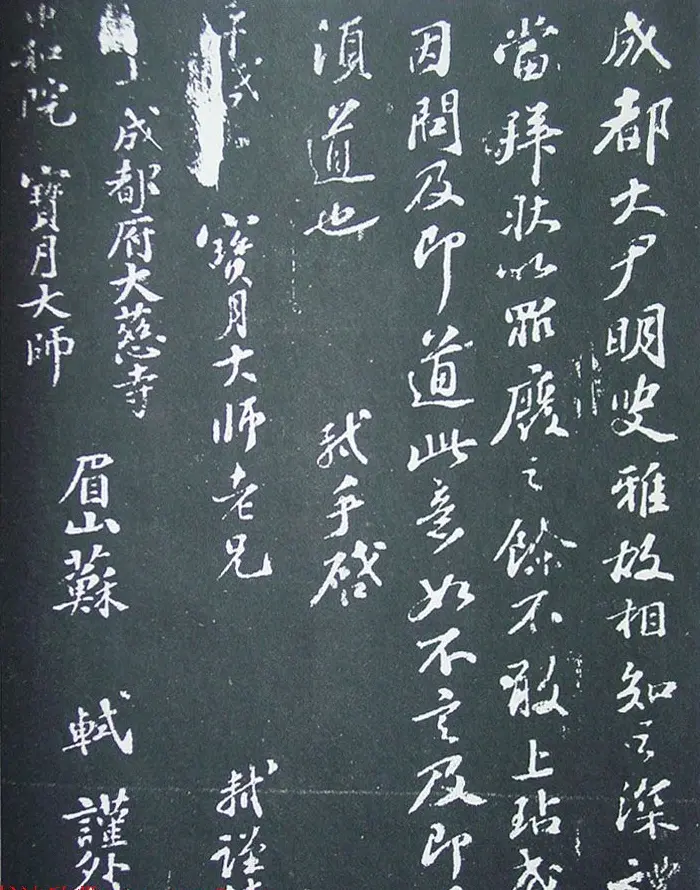 成都大尹明叟雅故相知之深禮
當拜狀以罪廢之餘不敢上玷或
因問及即道此意如不言及即
須道也
軾手啓
寶月大師老兄
軾謹
成都府大慈寺
中和院 寶月大師
眉山蘇 軾 謹外